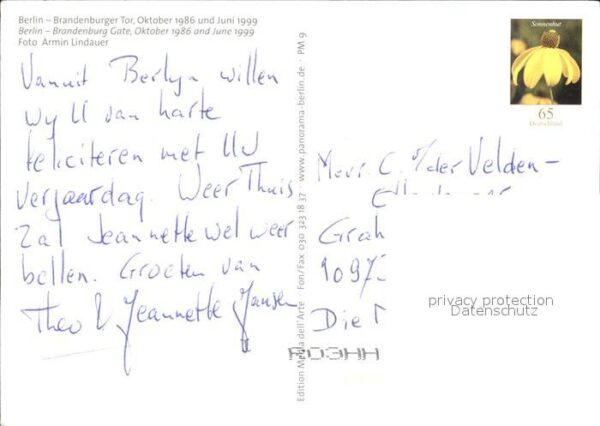 Berlin – Brandenburger Tor, Oktober 1986 und Juni 1999
Berlin – Brandenburg Gate, October 1986 and June 1999
Foto Armin Lindauer
Vanuit Berlyn willen
wy U van harte
feliciteren met Uw
verjaardag. Weer Thuis
Zal Jeannette wel weer
bellen. Groeten van
Theo & Jeannette Jansen
Edition Media dell'Arte · Fon/Fax 030 323 18 37 · www.panorama-berlin.de · PM 9
Sonnenhut
65
Deutschland
Mevr. C. v/der Velden-
Grah
1097
Die
privacy protection
Datenschutz